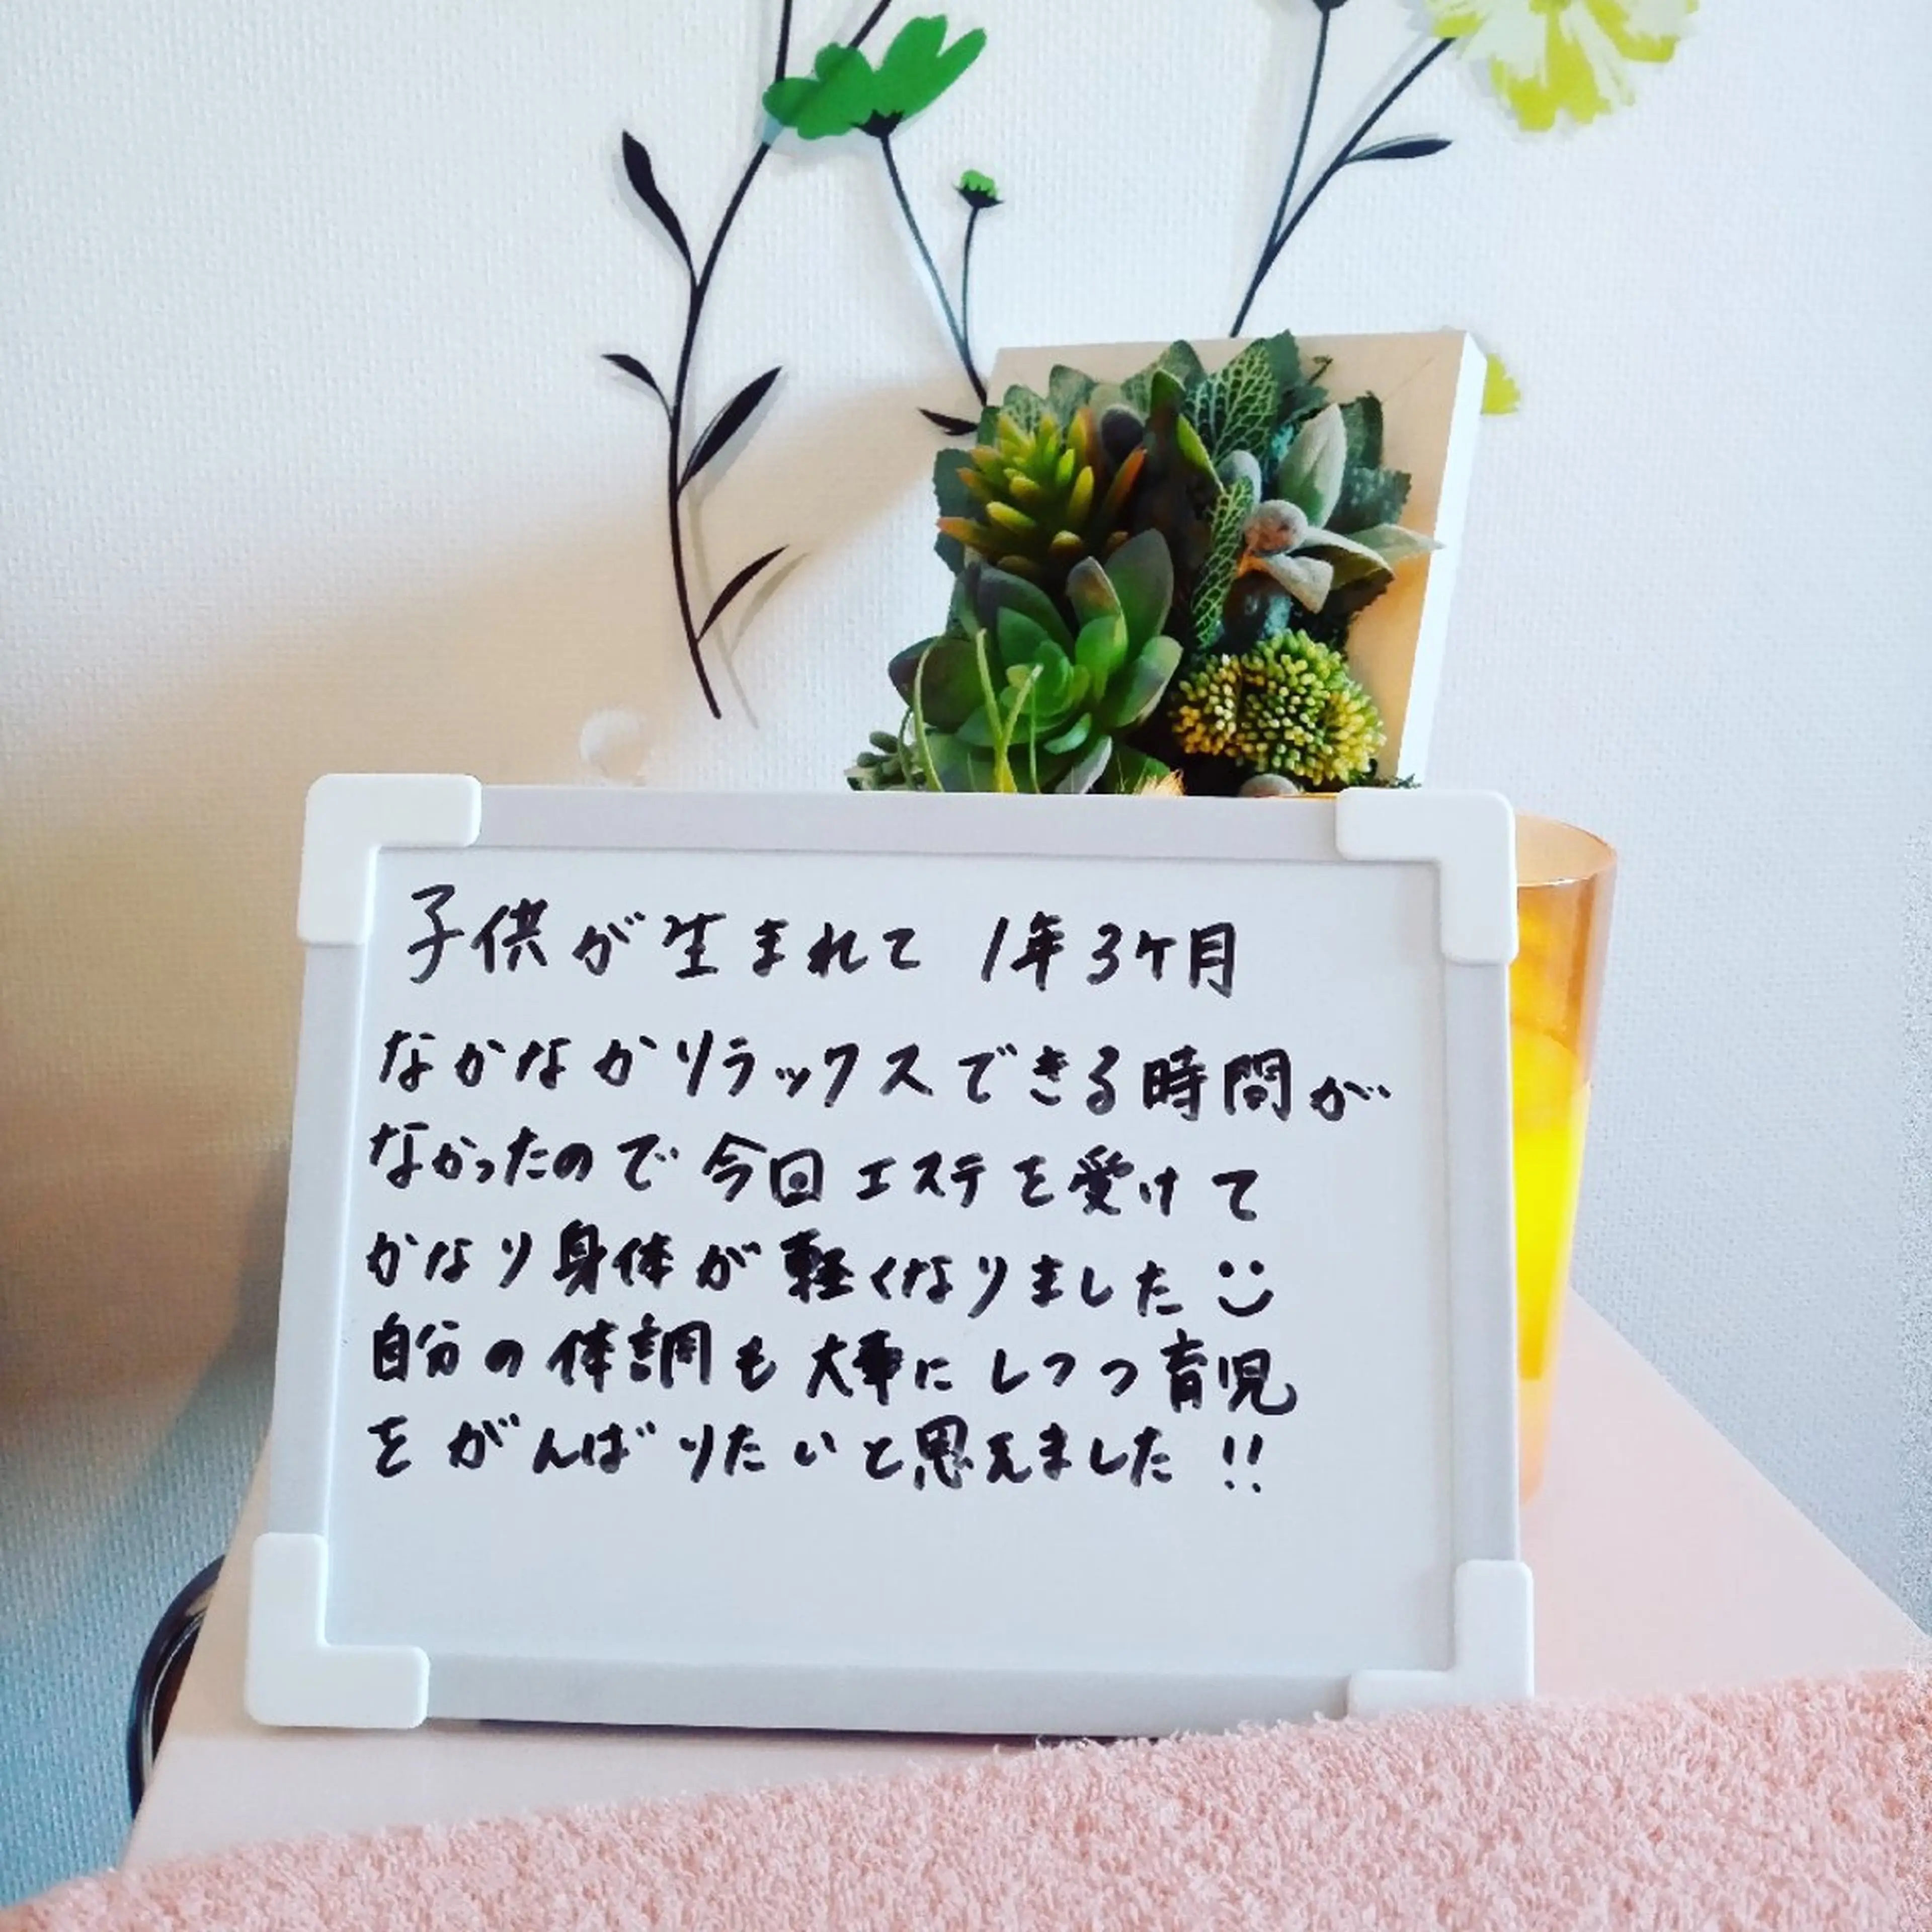 子供が生まれて 1年3ケ月
なかなかリラックスできる時間が
なかったので 今回 エステを受けて
かなり身体が軽くなりました
自分の体調も大事にしつつ育児
をがんばりたいと思えました!!